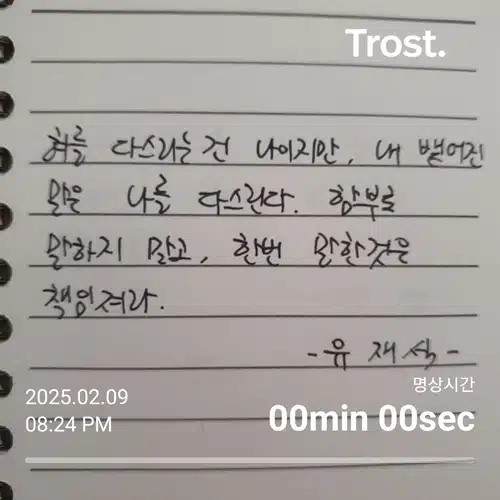 Trost.
혀를 다스리는 건 나이지만, 내 뱉어진
말은 나를 다스린다. 함부로
말하지 말고, 한번 말한것은
책임져라.
- 유 재석 -
명상시간
2025.02.09
00min 00sec
08:24 PM